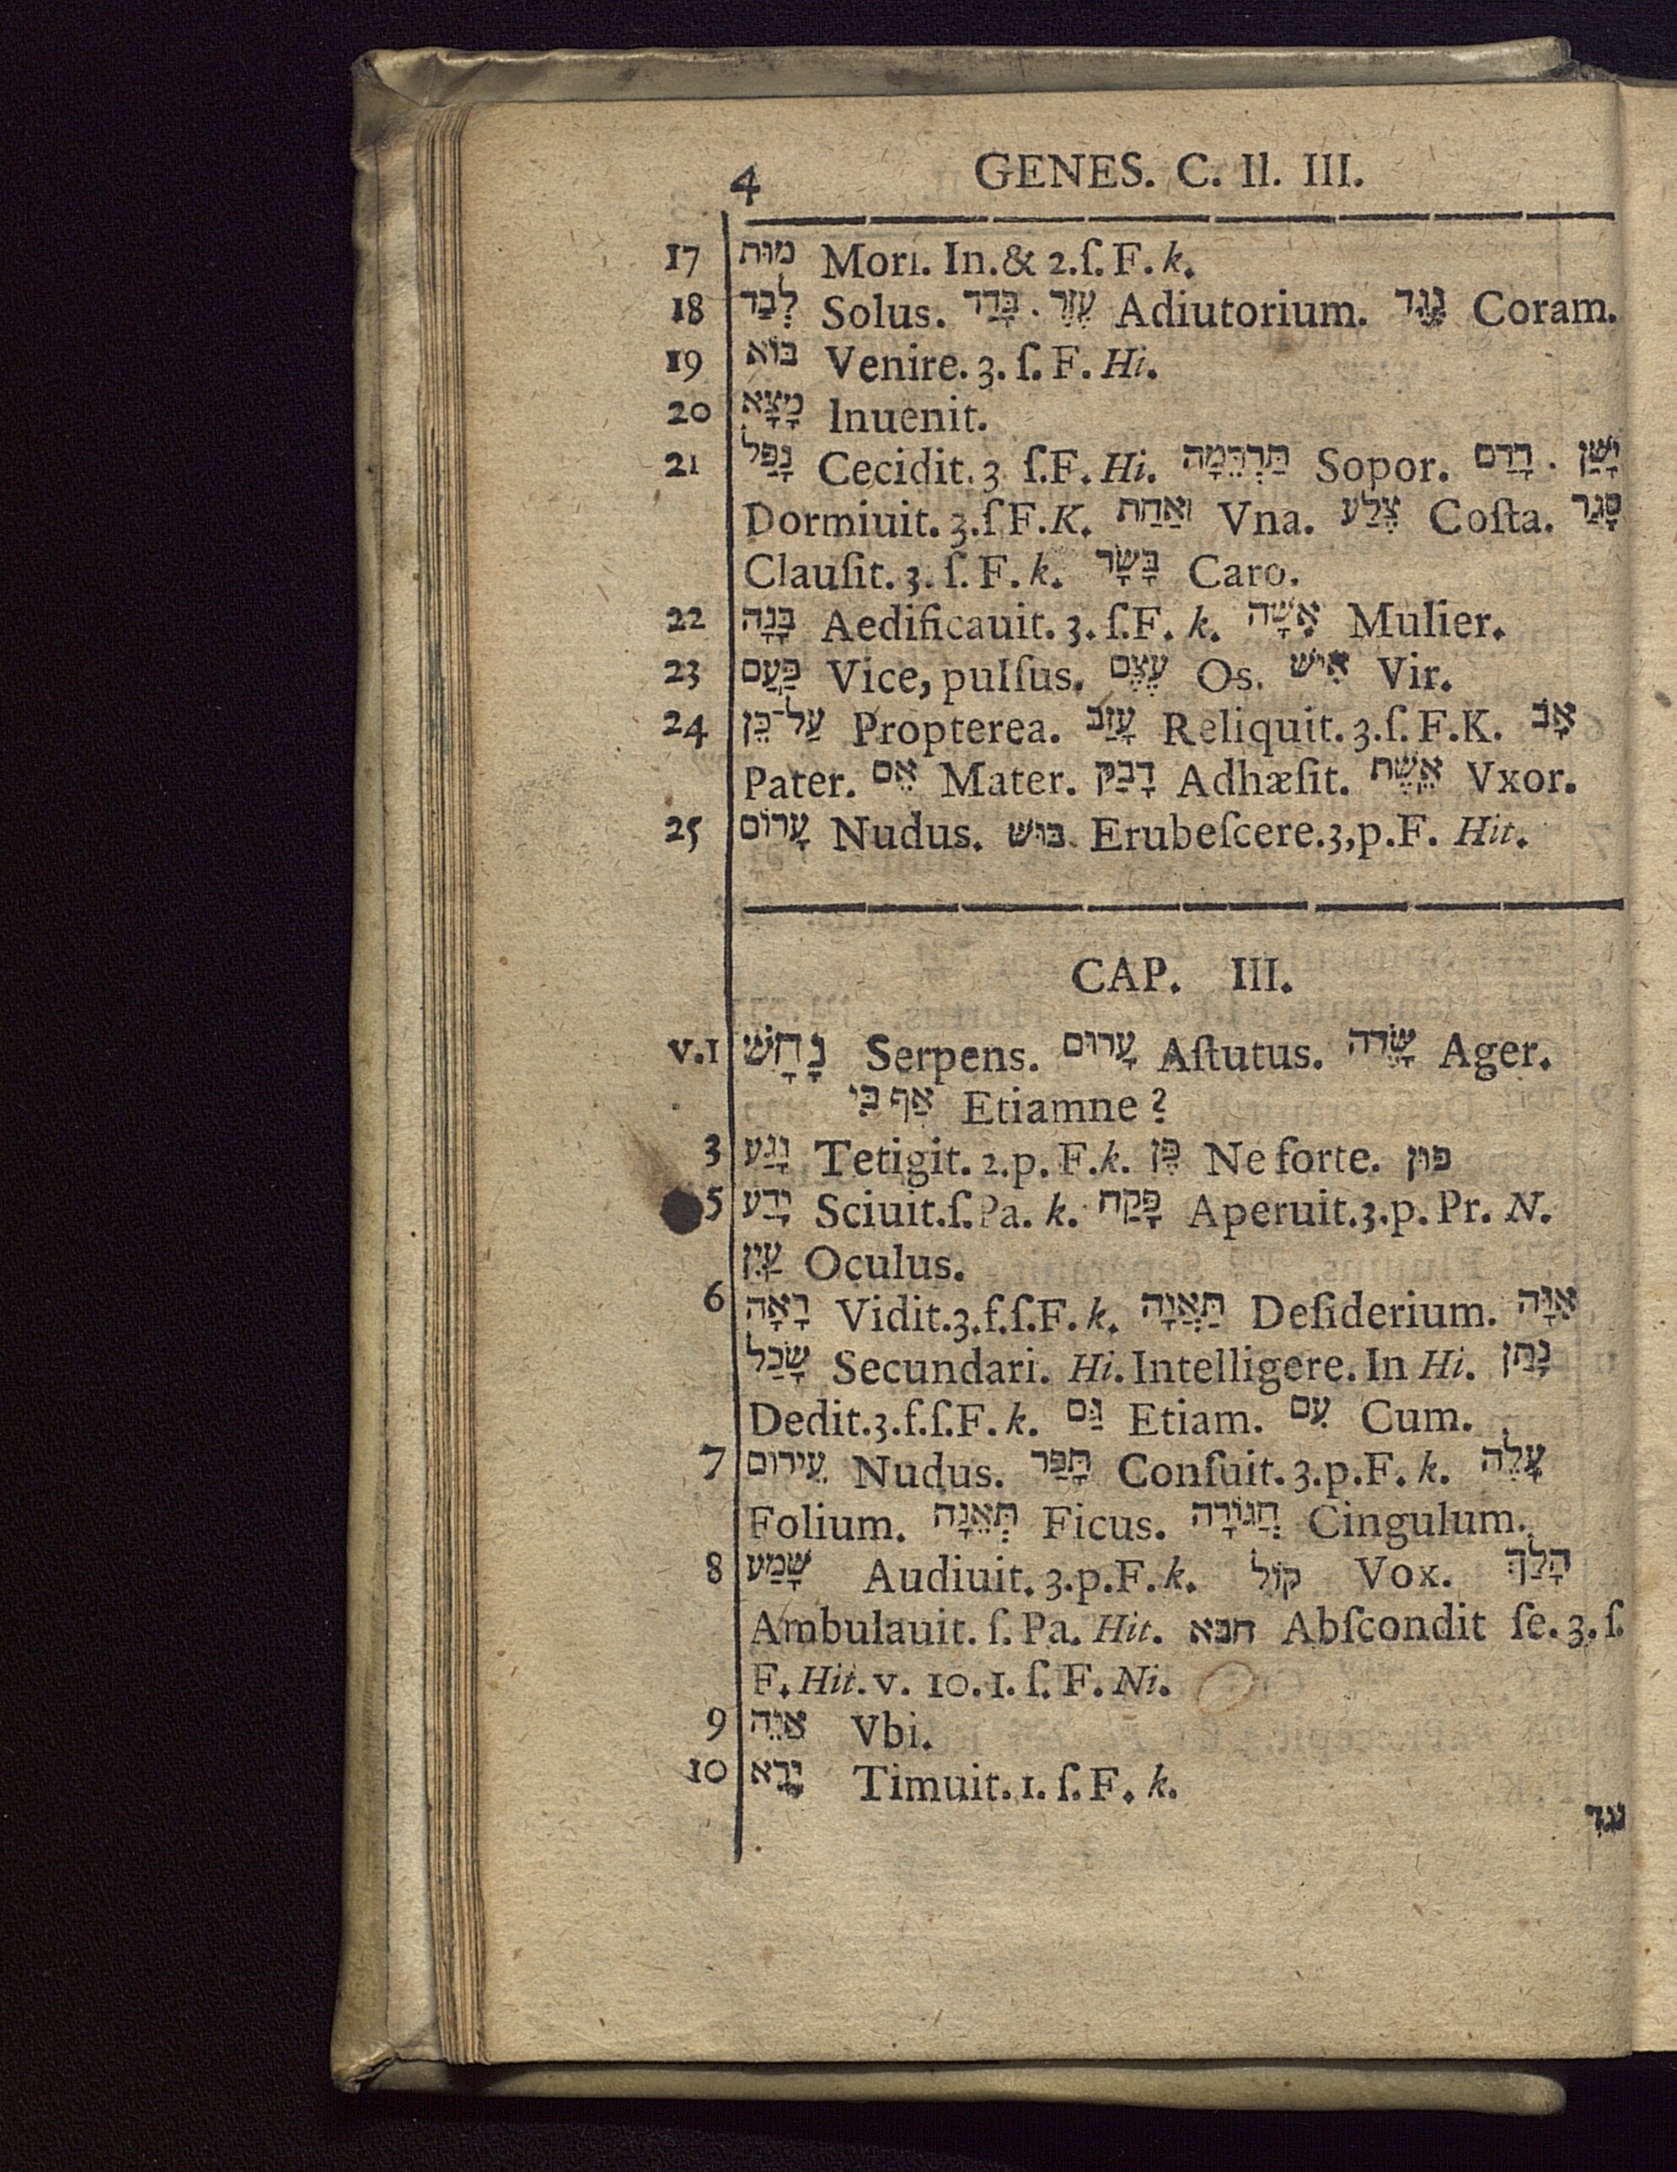 4 GENES. C. II. III.
17 מוּת Mori. In. & 2. ſ. F. k.
18 לְבַד Solus. בָּדַד . עֶזֶר Adiutorium. נֶגֶד Coram.
19 בּוֹא Venire. 3. ſ. F. Hi.
20 מָצָא Inuenit.
21 נָפַל Cecidit. 3 ſ. F. Hi. תַּרְדֵּמָה Sopor. רָדַם . יָשַׁן
Dormiuit. 3. ſ F. K. אַחַת Vna. צֶלַע Coſta. סָגַר
Clauſit. 3. ſ. F. k. בָּשָׂר Caro.
22 בָּנָה Aedificauit. 3. ſ. F. k. אִשָּׁה Mulier.
23 פַּעַם Vice, pulſus. עֶצֶם Os. אִישׁ Vir.
24 עַל־כֵּן Propterea. עָזַב Reliquit. 3. ſ. F. K. אָב
Pater. אֵם Mater. דָבַק Adhæſit. אֵשֶׁת Vxor.
25 עָרוֹם Nudus. בּוּשׁ Erubeſcere. 3, p. F. Hit.
CAP. III.
v. 1 נָחָשׁ Serpens. עָרוּם Aſtutus. שָׂדֶה Ager.
אַף כִּי Etiamne?
3 נָגַע Tetigit. 2. p. F. k. פֶּן Ne forte. פּוּן
5 יָדַע Sciuit. ſ. Pa. k. פָּקַח Aperuit. 3. p. Pr. N.
עַיִן Oculus.
6 רָאָה Vidit. 3. f. ſ. F. k. תַּאֲוָה Deſiderium. אִוָּה
שָׂכַל Secundari. Hi. Intelligere. In Hi. נָתַן
Dedit. 3. f. ſ. F. k. גַּם Etiam. עִם Cum.
7 עֵירוֹם Nudus. תָּפַר Conſuit. 3. p. F. k. עָלֶה
Folium. תְּאֵנָה Ficus. חֲגוֹרָה Cingulum.
8 שָׁמַע Audiuit. 3. p. F. k. קוֹל Vox. הָלַךְ
Ambulauit. ſ. Pa. Hit. חבא Abſcondit ſe. 3. ſ.
F. Hit. v. 10. 1. ſ. F. Ni.
9 אַיֵּה Vbi.
10 יָרֵא Timuit. 1. ſ. F. k.